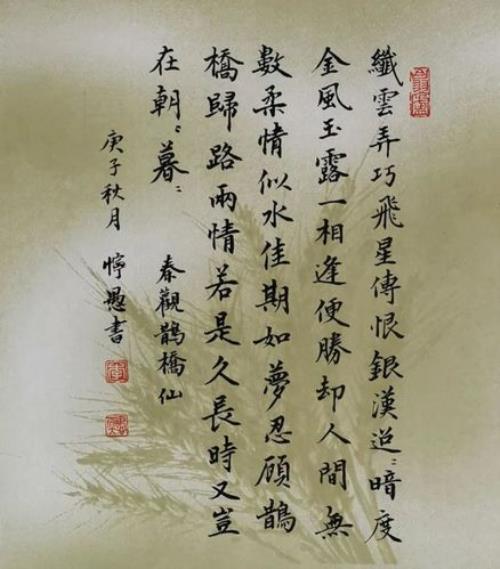 纖雲弄巧飛星傳恨銀漢迢〻暗度
金風玉露一相逢便勝却人間無
數柔情似水佳期如夢忍顧鵲
橋歸路兩情若是久長時又豈
在朝〻暮〻
秦觀鵲橋仙
庚子秋月 愚書